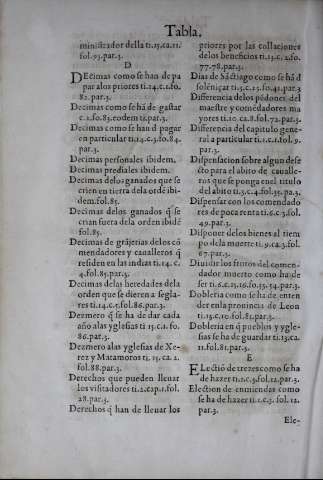 Tabla.
ministrador della ti.15.ca.11.
fol.93.par.3.
D
DEcimas como se han de pa
par alos priores ti.14.c.1.fo.
82.par.3.
Decimas como se hā de gastar
c.2.fo.83.eodem ti.par.3.
Decimas como se hau d pagar
en particular ti.14.c.3.fo.84.
par.3.
Decimas personales ibidem.
Decimas prediales ibidem.
Decimas delos ganados que se
crien en tierra dela ordē ibi-
dem.fol.85.
Decimas delos ganados q̄ se
crian fuera dela orden ibidē
fol.85.
Decimas de grājerias delos cō
mendadores y caualleros q̄
residen en las indias ti.14.c.
4.fol.85.par.3.
Decimas delas heredades dela
orden que se dieren a segla-
res ti.14.c.5.fol.86.par.3.
Dezmero q̄ se ha de dar cada
año alas yglesias ti.15.c.1.fo.
86.par.3.
Dezmero alas yglesias de Xe-
rez y Matamoros ti.15.ca.2.
fol.88.par.3.
Derechos que pueden lleuar
los visitadores ti.2.cap.1.fol.
28.par.3.
Derechos q̄ han de lleuar los
priores por las collaciones
delos beneficios ti.13.c.2.fo.
77.78.par.3.
Dias de Sāctiago como se hā d
solēnizar ti.5.c.13.fo.41.par.3
Differencia delos pēdones del
maestre y comēdadores ma
yores ti.10.ca.8.fol.72.par.3.
Differencia del capitulo gene-
ral a particular ti.1.c.1.fol.9.
par.3.
Dispensacion sobre algun defe
cto para el abito de caualle-
ros que se ponga en el titulo
del abito ti.3.c.4.fol.35.pa.3.
Dispensar con los comendado
res de poca renta ti.6.c.3.fol.
49.par.3.
Disponer delos bienes al tiem
po dela muerte ti.9.ca.3.fol.
67.par.3.
Diuidir los frutos del comen-
dador muerto como ha de
ser ti.6.c.15.fo.53.54.par.3.
Dobleria como se ha de enten
der en la prouincia de Leon
ti.13.c.10.fol.81.par.3.
Dobleria en q̄ pueblos y ygle-
sias se ha de guardar ti.13.ca.
11.fol.81.par.3.
E
ELectiō de trezes como se ha
de hazer ti.1.c.3.fol.12.par.3.
Election de enmiendas como
se ha de hazer ti.1.c.3. fol.12.
par.3.
Ele-